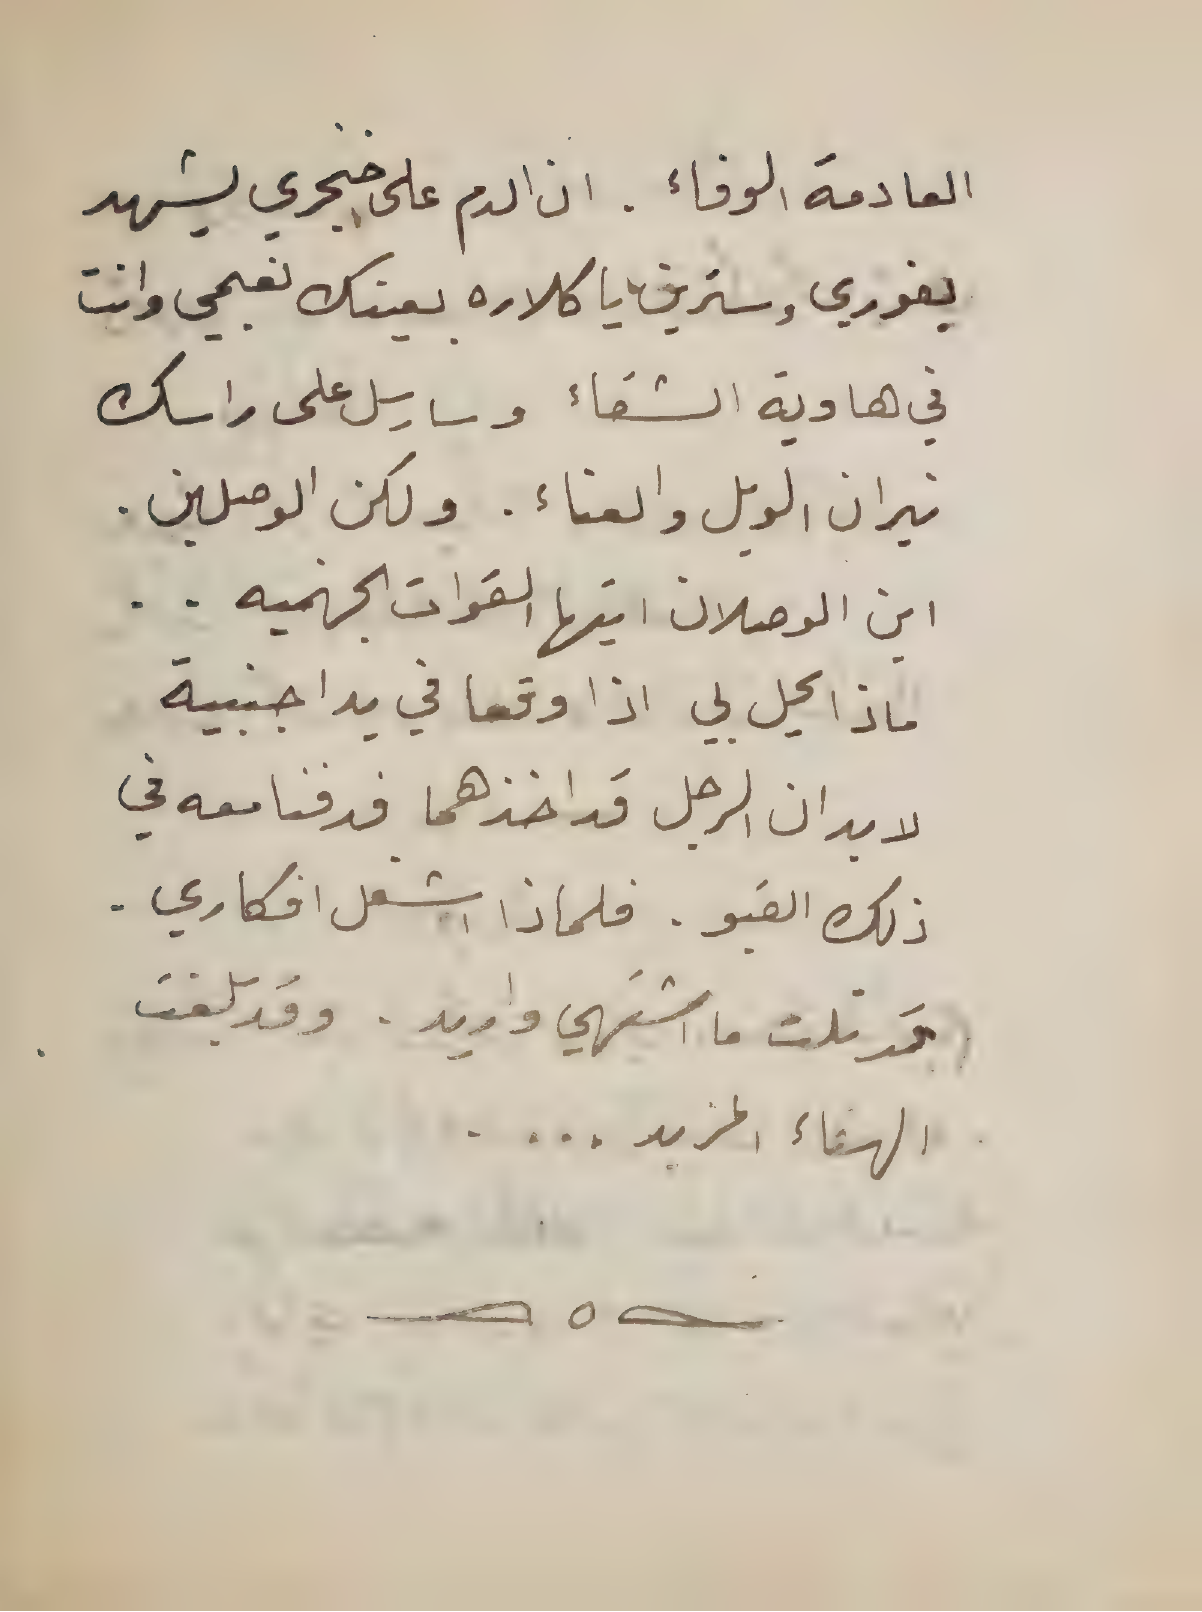 العادمة الوفاء . ان الدم على خنجري ليشهد
بفوزي وسترين يا كلاره بعينك نعيمي وانت
في هاوية الشقاء وسارسل على راسك
نيران الويل والعناء . ولكن الوصلين .
اين الوصلان ايتها القوات الجهنميه . .
ماذا يحل بي اذا وقعا في يد اجنبية
لا بد ان الرجل قد اخذهما فدفنا معه في
ذلك القبو . فلماذا اشغل افكاري .
قد نلت ما اشتهي واريد . وقد بلغت
الهناء المزيد . . . .